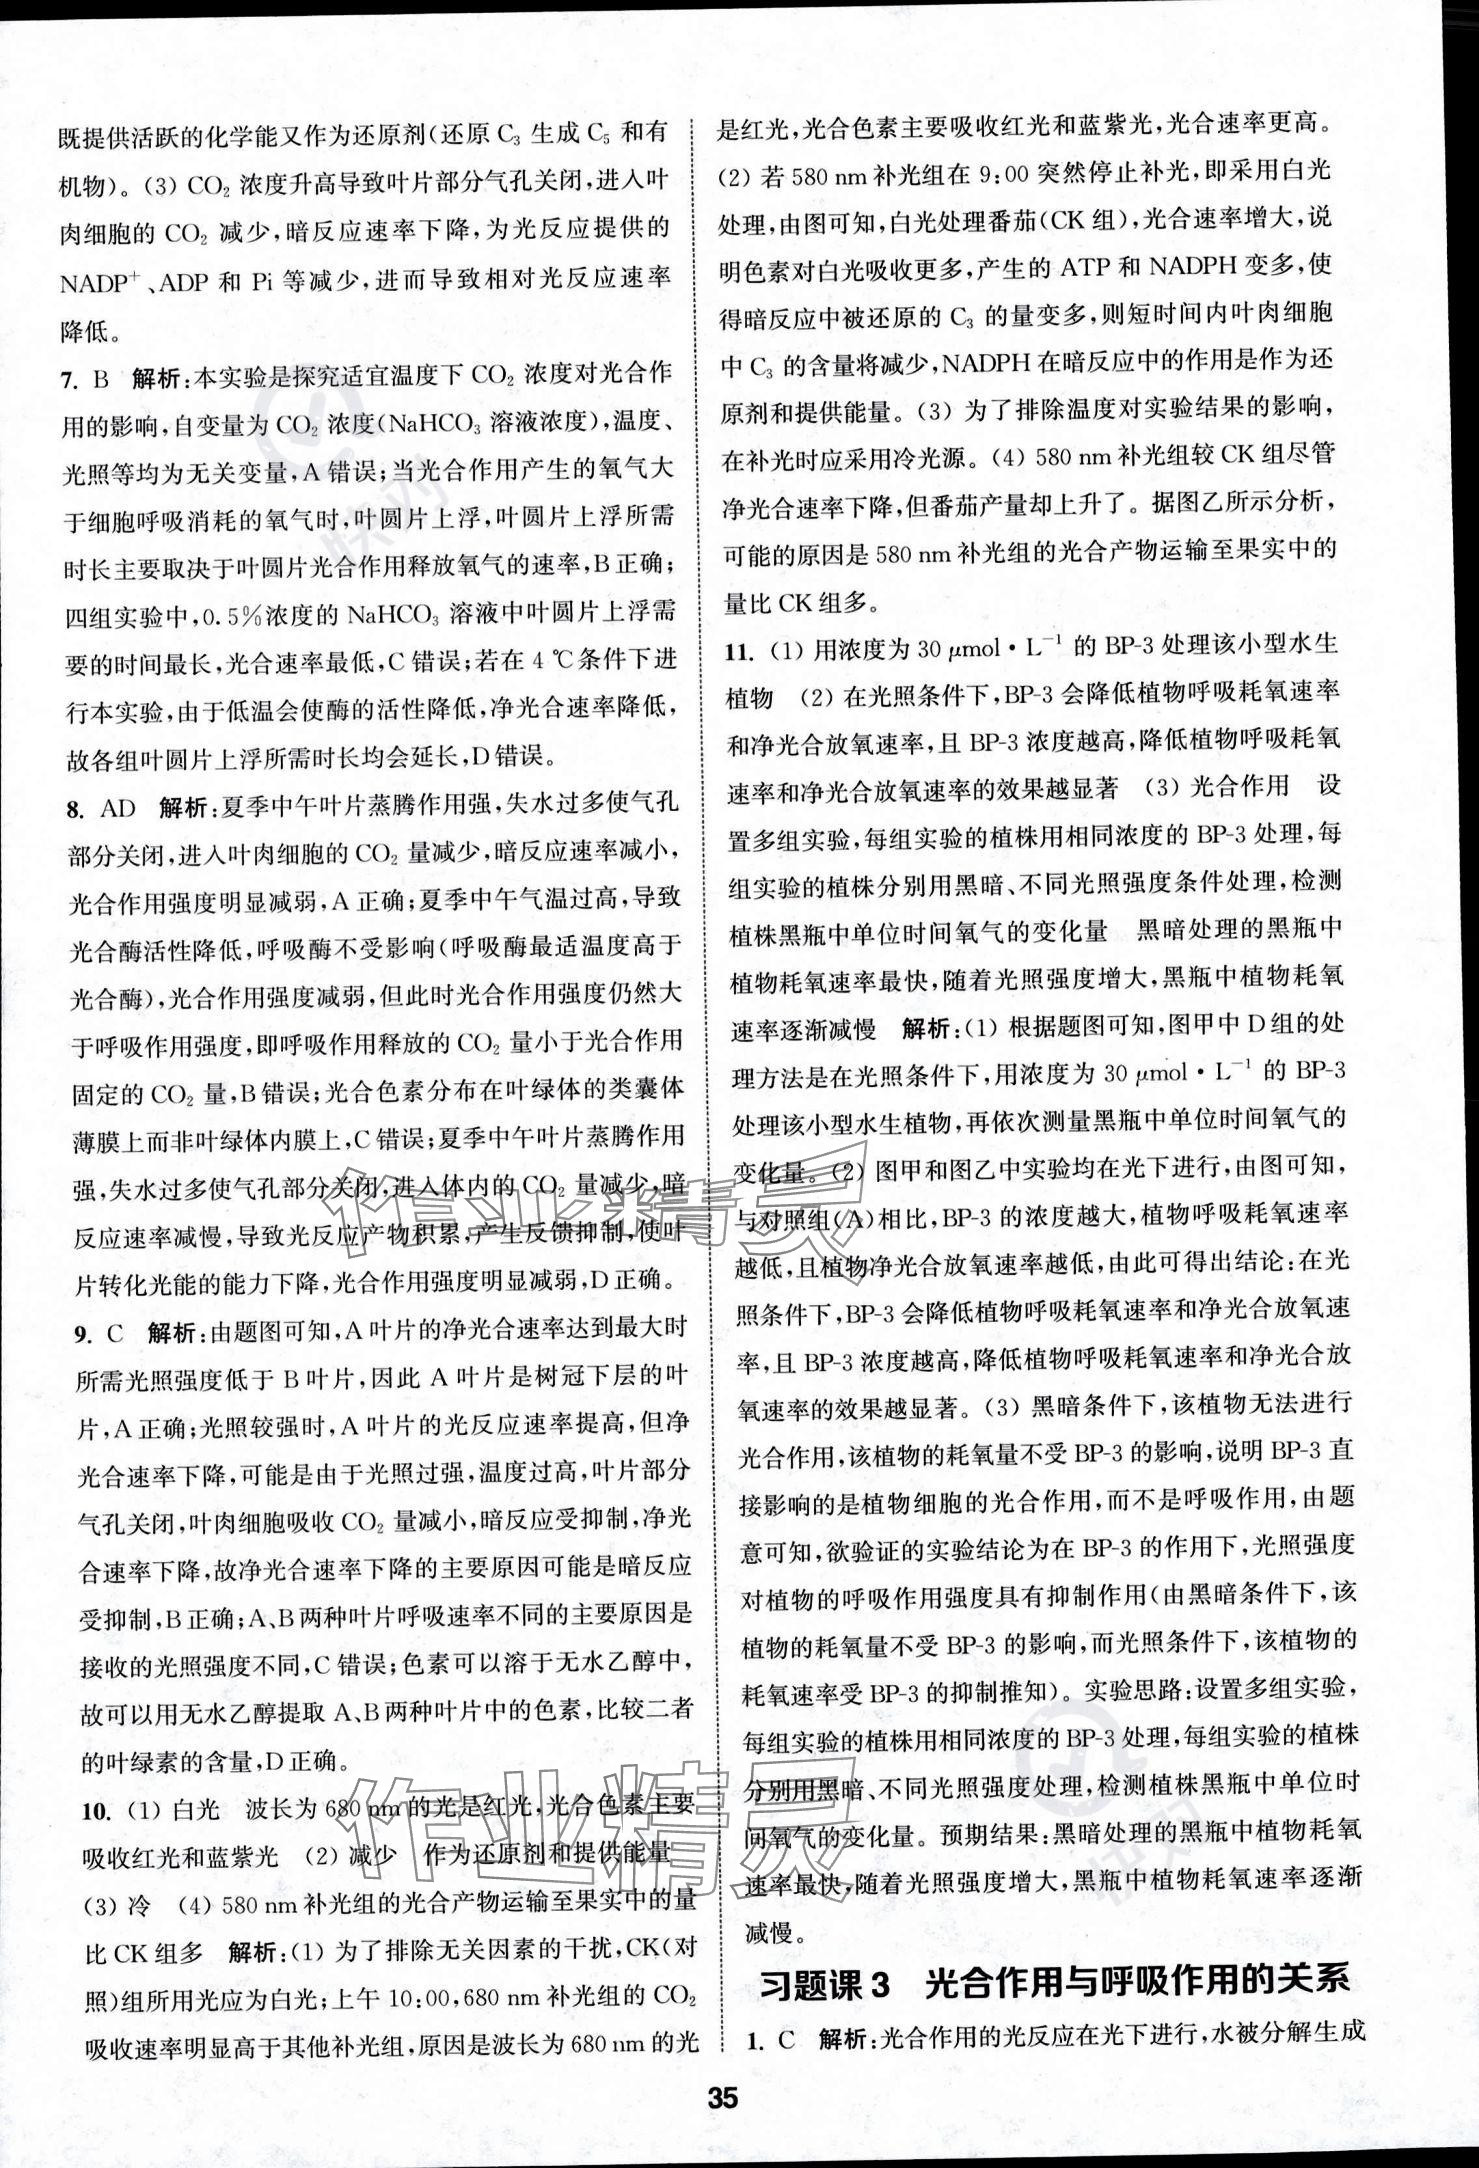 既提供活跃的化学能又作为还原剂(还原 C₃ 生成 C₅ 和有
机物)。(3) CO₂ 浓度升高导致叶片部分气孔关闭,进入叶
肉细胞的 CO₂ 减少,暗反应速率下降,为光反应提供的
NADP⁺、ADP 和 Pi 等减少,进而导致相对光反应速率
降低。
7. B 解析:本实验是探究适宜温度下 CO₂ 浓度对光合作
用的影响,自变量为 CO₂ 浓度(NaHCO₃ 溶液浓度),温度、
光照等均为无关变量,A 错误;当光合作用产生的氧气大
于细胞呼吸消耗的氧气时,叶圆片上浮,叶圆片上浮所需
时长主要取决于叶圆片光合作用释放氧气的速率,B 正确;
四组实验中,0.5%浓度的 NaHCO₃ 溶液中叶圆片上浮需
要的时间最长,光合速率最低,C 错误;若在 4 ℃条件下进
行本实验,由于低温会使酶的活性降低,净光合速率降低,
故各组叶圆片上浮所需时长均会延长,D 错误。
8. AD 解析:夏季中午叶片蒸腾作用强,失水过多使气孔
部分关闭,进入叶肉细胞的 CO₂ 量减少,暗反应速率减小,
光合作用强度明显减弱,A 正确;夏季中午气温过高,导致
光合酶活性降低,呼吸酶不受影响(呼吸酶最适温度高于
光合酶),光合作用强度减弱,但此时光合作用强度仍然大
于呼吸作用强度,即呼吸作用释放的 CO₂ 量小于光合作用
固定的 CO₂ 量,B 错误;光合色素分布在叶绿体的类囊体
薄膜上而非叶绿体内膜上,C 错误;夏季中午叶片蒸腾作用
强,失水过多使气孔部分关闭,进入体内的 CO₂ 量减少,暗
反应速率减慢,导致光反应产物积累,产生反馈抑制,使叶
片转化光能的能力下降,光合作用强度明显减弱,D 正确。
9. C 解析:由题图可知,A 叶片的净光合速率达到最大时
所需光照强度低于 B 叶片,因此 A 叶片是树冠下层的叶
片,A 正确;光照较强时,A 叶片的光反应速率提高,但净
光合速率下降,可能是由于光照过强,温度过高,叶片部分
气孔关闭,叶肉细胞吸收 CO₂ 量减小,暗反应受抑制,净光
合速率下降,故净光合速率下降的主要原因可能是暗反应
受抑制,B 正确;A、B 两种叶片呼吸速率不同的主要原因是
接收的光照强度不同,C 错误;色素可以溶于无水乙醇中,
故可以用无水乙醇提取 A、B 两种叶片中的色素,比较二者
的叶绿素的含量,D 正确。
10. (1) 白光 波长为 680 nm 的光是红光,光合色素主要
吸收红光和蓝紫光 (2) 减少 作为还原剂和提供能量
(3) 冷 (4) 580 nm 补光组的光合产物运输至果实中的量
比 CK 组多 解析:(1) 为了排除无关因素的干扰,CK(对
照)组所用光应为白光;上午 10:00,680 nm 补光组的 CO₂
吸收速率明显高于其他补光组,原因是波长为 680 nm 的光
是红光,光合色素主要吸收红光和蓝紫光,光合速率更高。
(2) 若 580 nm 补光组在 9:00 突然停止补光,即采用白光
处理,由图可知,白光处理番茄(CK 组),光合速率增大,说
明色素对白光吸收更多,产生的 ATP 和 NADPH 变多,使
得暗反应中被还原的 C₃ 的量变多,则短时间内叶肉细胞
中 C₃ 的含量将减少,NADPH 在暗反应中的作用是作为还
原剂和提供能量。(3) 为了排除温度对实验结果的影响,
在补光时应采用冷光源。(4) 580 nm 补光组较 CK 组尽管
净光合速率下降,但番茄产量却上升了。据图乙所示分析,
可能的原因是 580 nm 补光组的光合产物运输至果实中的
量比 CK 组多。
11. (1) 用浓度为 30 μmol·L⁻¹ 的 BP-3 处理该小型水生
植物 (2) 在光照条件下,BP-3 会降低植物呼吸耗氧速率
和净光合放氧速率,且 BP-3 浓度越高,降低植物呼吸耗氧
速率和净光合放氧速率的效果越显著 (3) 光合作用 设
置多组实验,每组实验的植株用相同浓度的 BP-3 处理,每
组实验的植株分别用黑暗、不同光照强度条件处理,检测
植株黑瓶中单位时间氧气的变化量 黑暗处理的黑瓶中
植物耗氧速率最快,随着光照强度增大,黑瓶中植物耗氧
速率逐渐减慢 解析:(1) 根据题图可知,图甲中 D 组的处
理方法是在光照条件下,用浓度为 30 μmol·L⁻¹ 的 BP-3
处理该小型水生植物,再依次测量黑瓶中单位时间氧气的
变化量。(2) 图甲和图乙中实验均在光下进行,由图可知,
与对照组(A)相比,BP-3 的浓度越大,植物呼吸耗氧速率
越低,且植物净光合放氧速率越低,由此可得出结论:在光
照条件下,BP-3 会降低植物呼吸耗氧速率和净光合放氧速
率,且 BP-3 浓度越高,降低植物呼吸耗氧速率和净光合放
氧速率的效果越显著。(3) 黑暗条件下,该植物无法进行
光合作用,该植物的耗氧量不受 BP-3 的影响,说明 BP-3 直
接影响的是植物细胞的光合作用,而不是呼吸作用,由题
意可知,欲验证的实验结论为在 BP-3 的作用下,光照强度
对植物的呼吸作用强度具有抑制作用(由黑暗条件下,该
植物的耗氧量不受 BP-3 的影响,而光照条件下,该植物的
耗氧速率受 BP-3 的抑制推知)。实验思路:设置多组实验,
每组实验的植株用相同浓度的 BP-3 处理,每组实验的植株
分别用黑暗、不同光照强度处理,检测植株黑瓶中单位时
间氧气的变化量。预期结果:黑暗处理的黑瓶中植物耗氧
速率最快,随着光照强度增大,黑瓶中植物耗氧速率逐渐
减慢。
习题课 3 光合作用与呼吸作用的关系
1. C 解析:光合作用的光反应在光下进行,水被分解生成
35
作业精灵
作业精灵
快对
快对